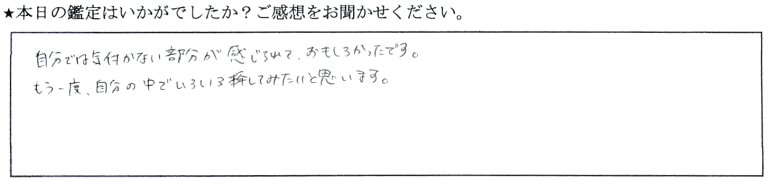 ★本日の鑑定はいかがでしたか？ご感想をお聞かせください。
自分では気付かない部分が感じられて、おもしろかったです。
もう一度、自分の中でいろいろ探してみたいと思います。